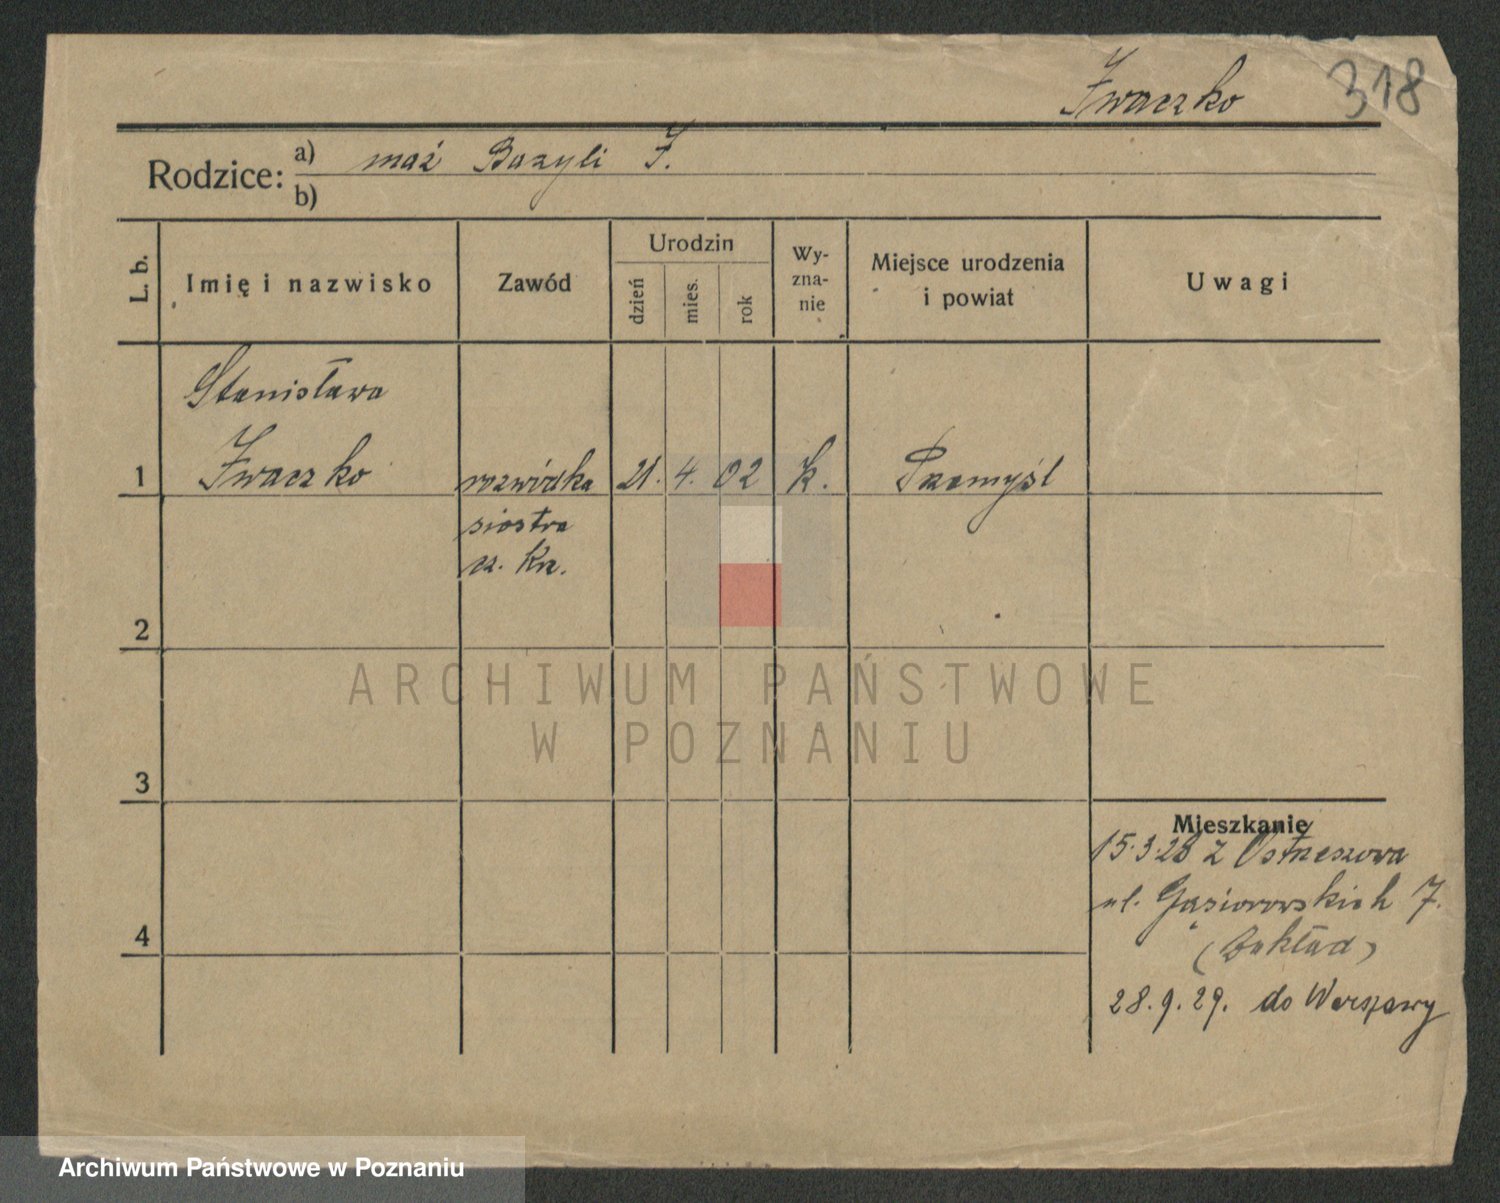 Iwaczko 318
Rodzice: a) mąż Bazyli I.
b)
L. b.
Imię i nazwisko
Zawód
Urodzin
dzień
mies.
rok
Wy-
zna-
nie
Miejsce urodzenia
i powiat
Uwagi
Stanisława
1 Iwaczko rozwódka 21. 4. 02 k. Przemyśl
siostra
cz. Krz.
2
3
4
Mieszkanie
15.3.28 z Ostrzeszowa
ul. Gąsiorowskich 7.
(Zakład)
28.9.29. do Warszawy
ARCHIWUM PAŃSTWOWE
W POZNANIU
Archiwum Państwowe w Poznaniu